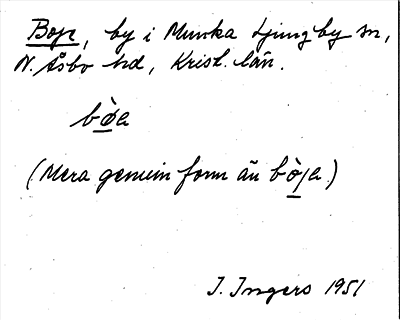 Boje, by i Munka Ljungby sn,
N. Åsbo hd, Krist. län.
bø̀a
(Mera genuin form än bò̱ja)
I. Ingers 1951